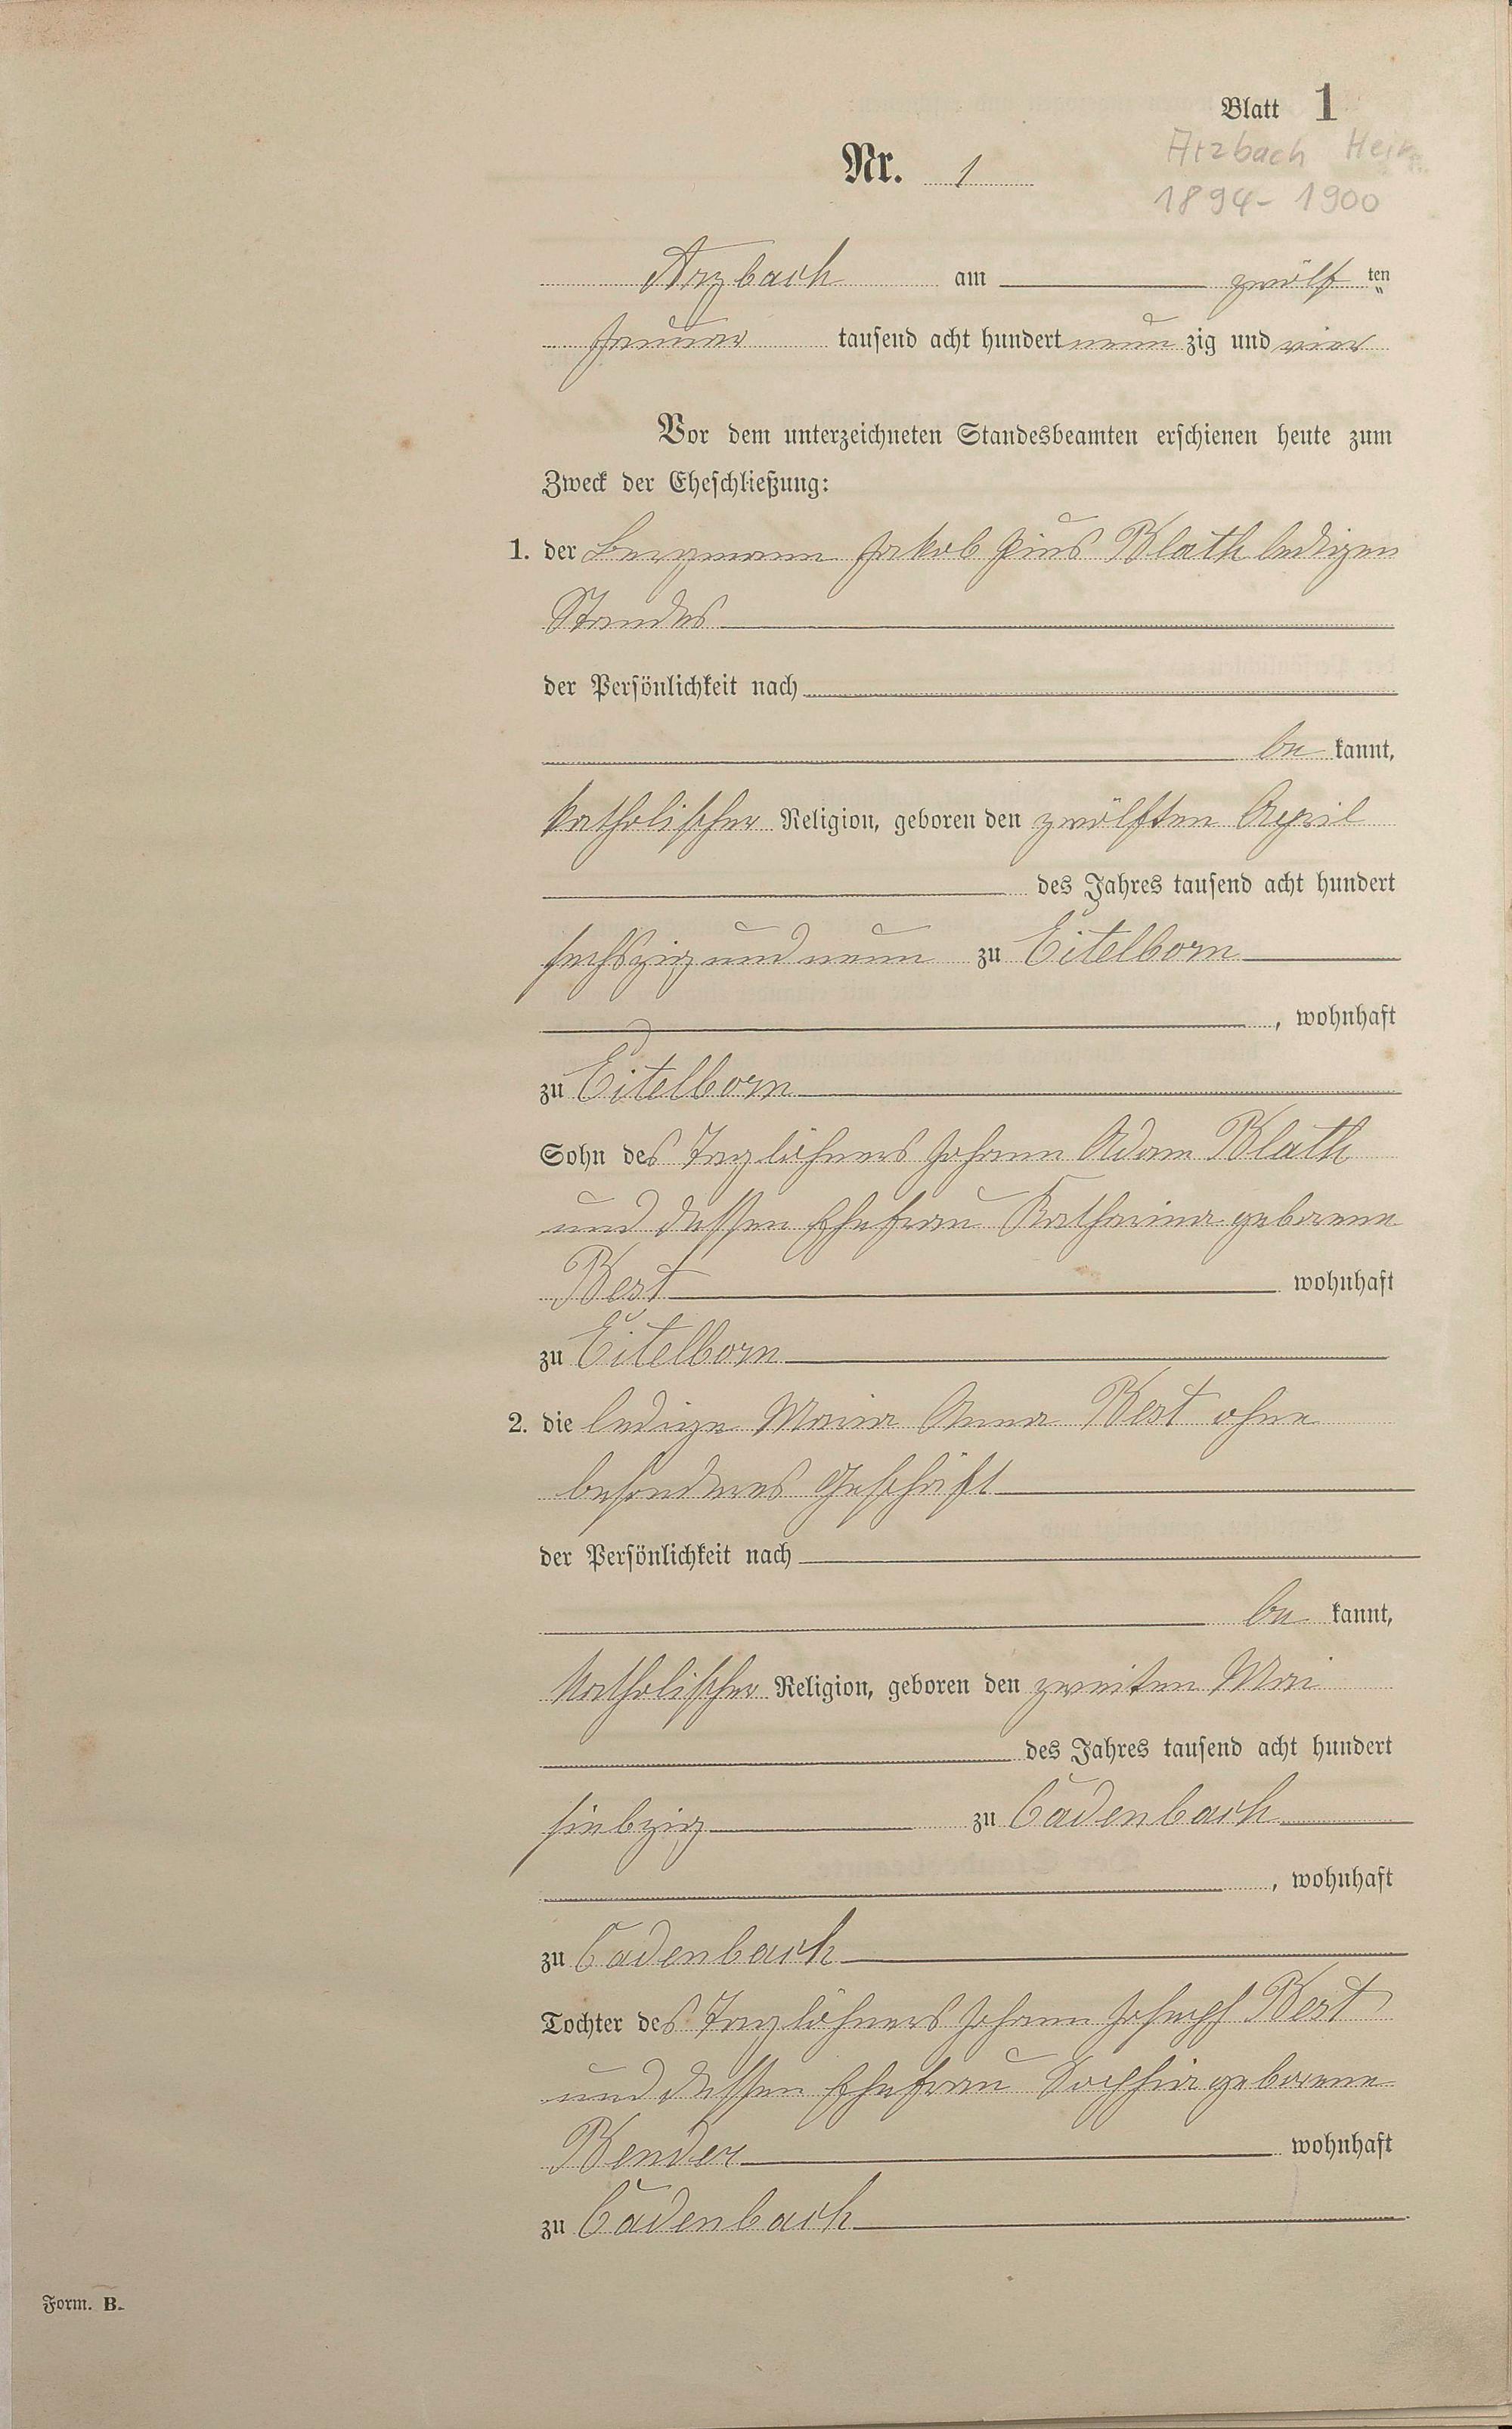 Blatt 1
Arzbach Heir
1894-1900
Nr. 1
Arzbach am zwölf ten
Januar tausend acht hundert neun zig und vier
Vor dem unterzeichneten Standesbeamten erschienen heute zum
Zweck der Eheschließung:
1. der Bergmann Jakob Pius Blath ledigen
Standes
der Persönlichkeit nach
be kannt,
katholischer Religion, geboren den zwölften April
des Jahres tausend acht hundert
sechszig und neun zu Eitelborn
, wohnhaft
zu Eitelborn
Sohn des Taglöhners Johann Adam Blath
und dessen Ehefrau Katharina geborene
Best wohnhaft
zu Eitelborn
2. die ledige Maria Anna Best ohne
besonderes Geschäft
der Persönlichkeit nach
be kannt,
katholischer Religion, geboren den zweiten Mai
des Jahres tausend acht hundert
siebzig zu Cadenbach
, wohnhaft
zu Cadenbach
Tochter des Taglöhners Johann Joseph Best
und dessen Ehefrau Sophia geborene
Bender wohnhaft
zu Cadenbach
Form. B.